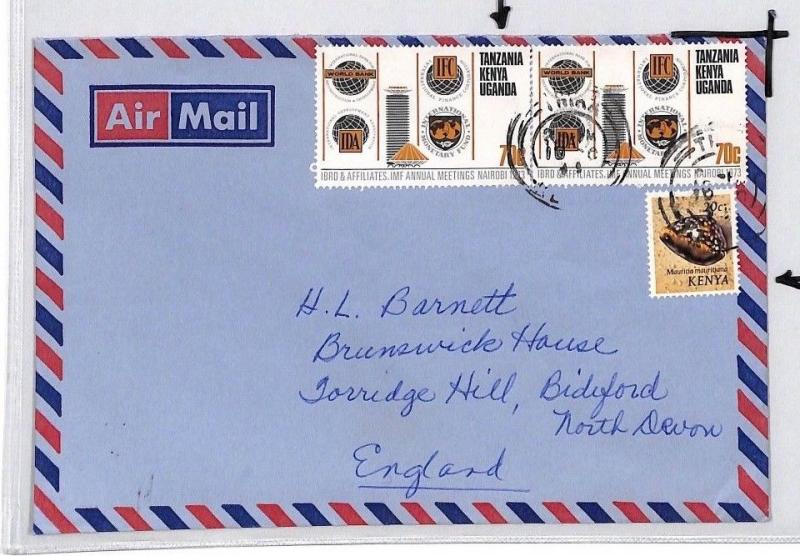 Air Mail
WORLD BANK
IFC
TANZANIA
KENYA
UGANDA
IDA
INTERNATIONAL MONETARY FUND
70c
IBRD & AFFILIATES. IMF ANNUAL MEETINGS NAIROBI
IFC
INTERNATIONAL FINANCE CORPORATION
TANZANIA
KENYA
UGANDA
IDA
INTERNATIONAL MONETARY FUND
70c
IBRD & AFFILIATES. IMF ANNUAL MEETINGS NAIROBI 1973
Mauritia mauritiana
KENYA
H.L. Barnett
Brunswick House
Torridge Hill, Bideford
North Devon
England